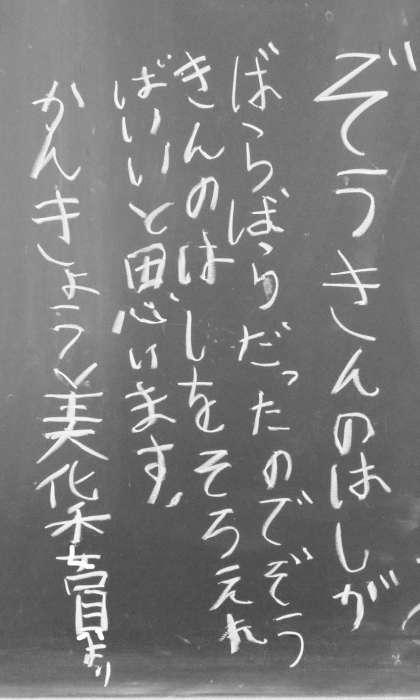 ぞうきんのはしが
ばらばらだったのでぞう
きんのはしをそろえれ
ばいいと思います。
かんきょう美化委員より